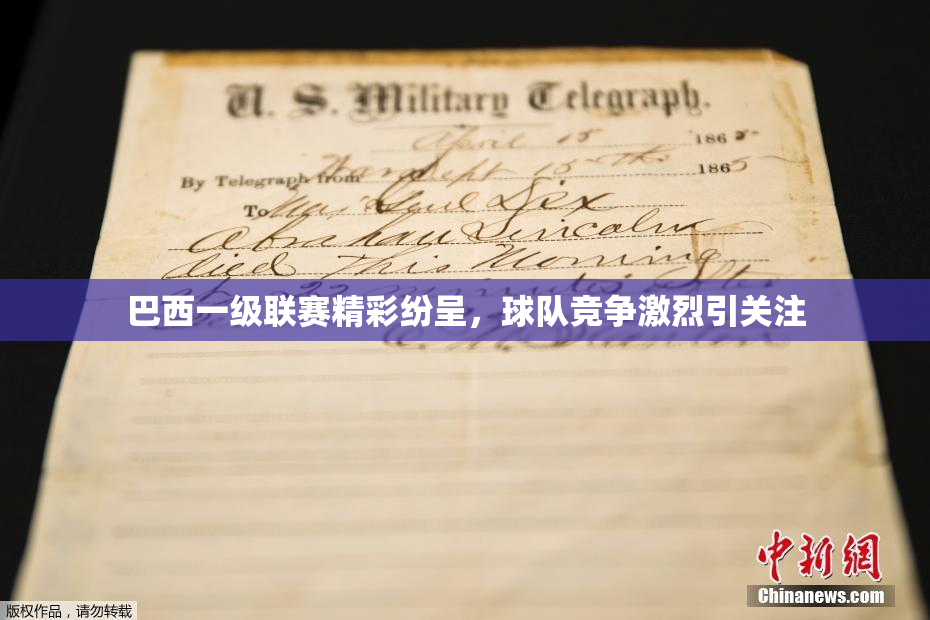 U. S. Military Telegraph.
April 15 1865
By Telegraph from War Dept 15th 1865
To Maj Genl Dix
Abraham Lincoln
died This Morning
at 22 minutes after
巴西一级联赛精彩纷呈，球队竞争激烈引关注
E. M. Stanton
中新網
Chinanews.com
版权作品，请勿转载